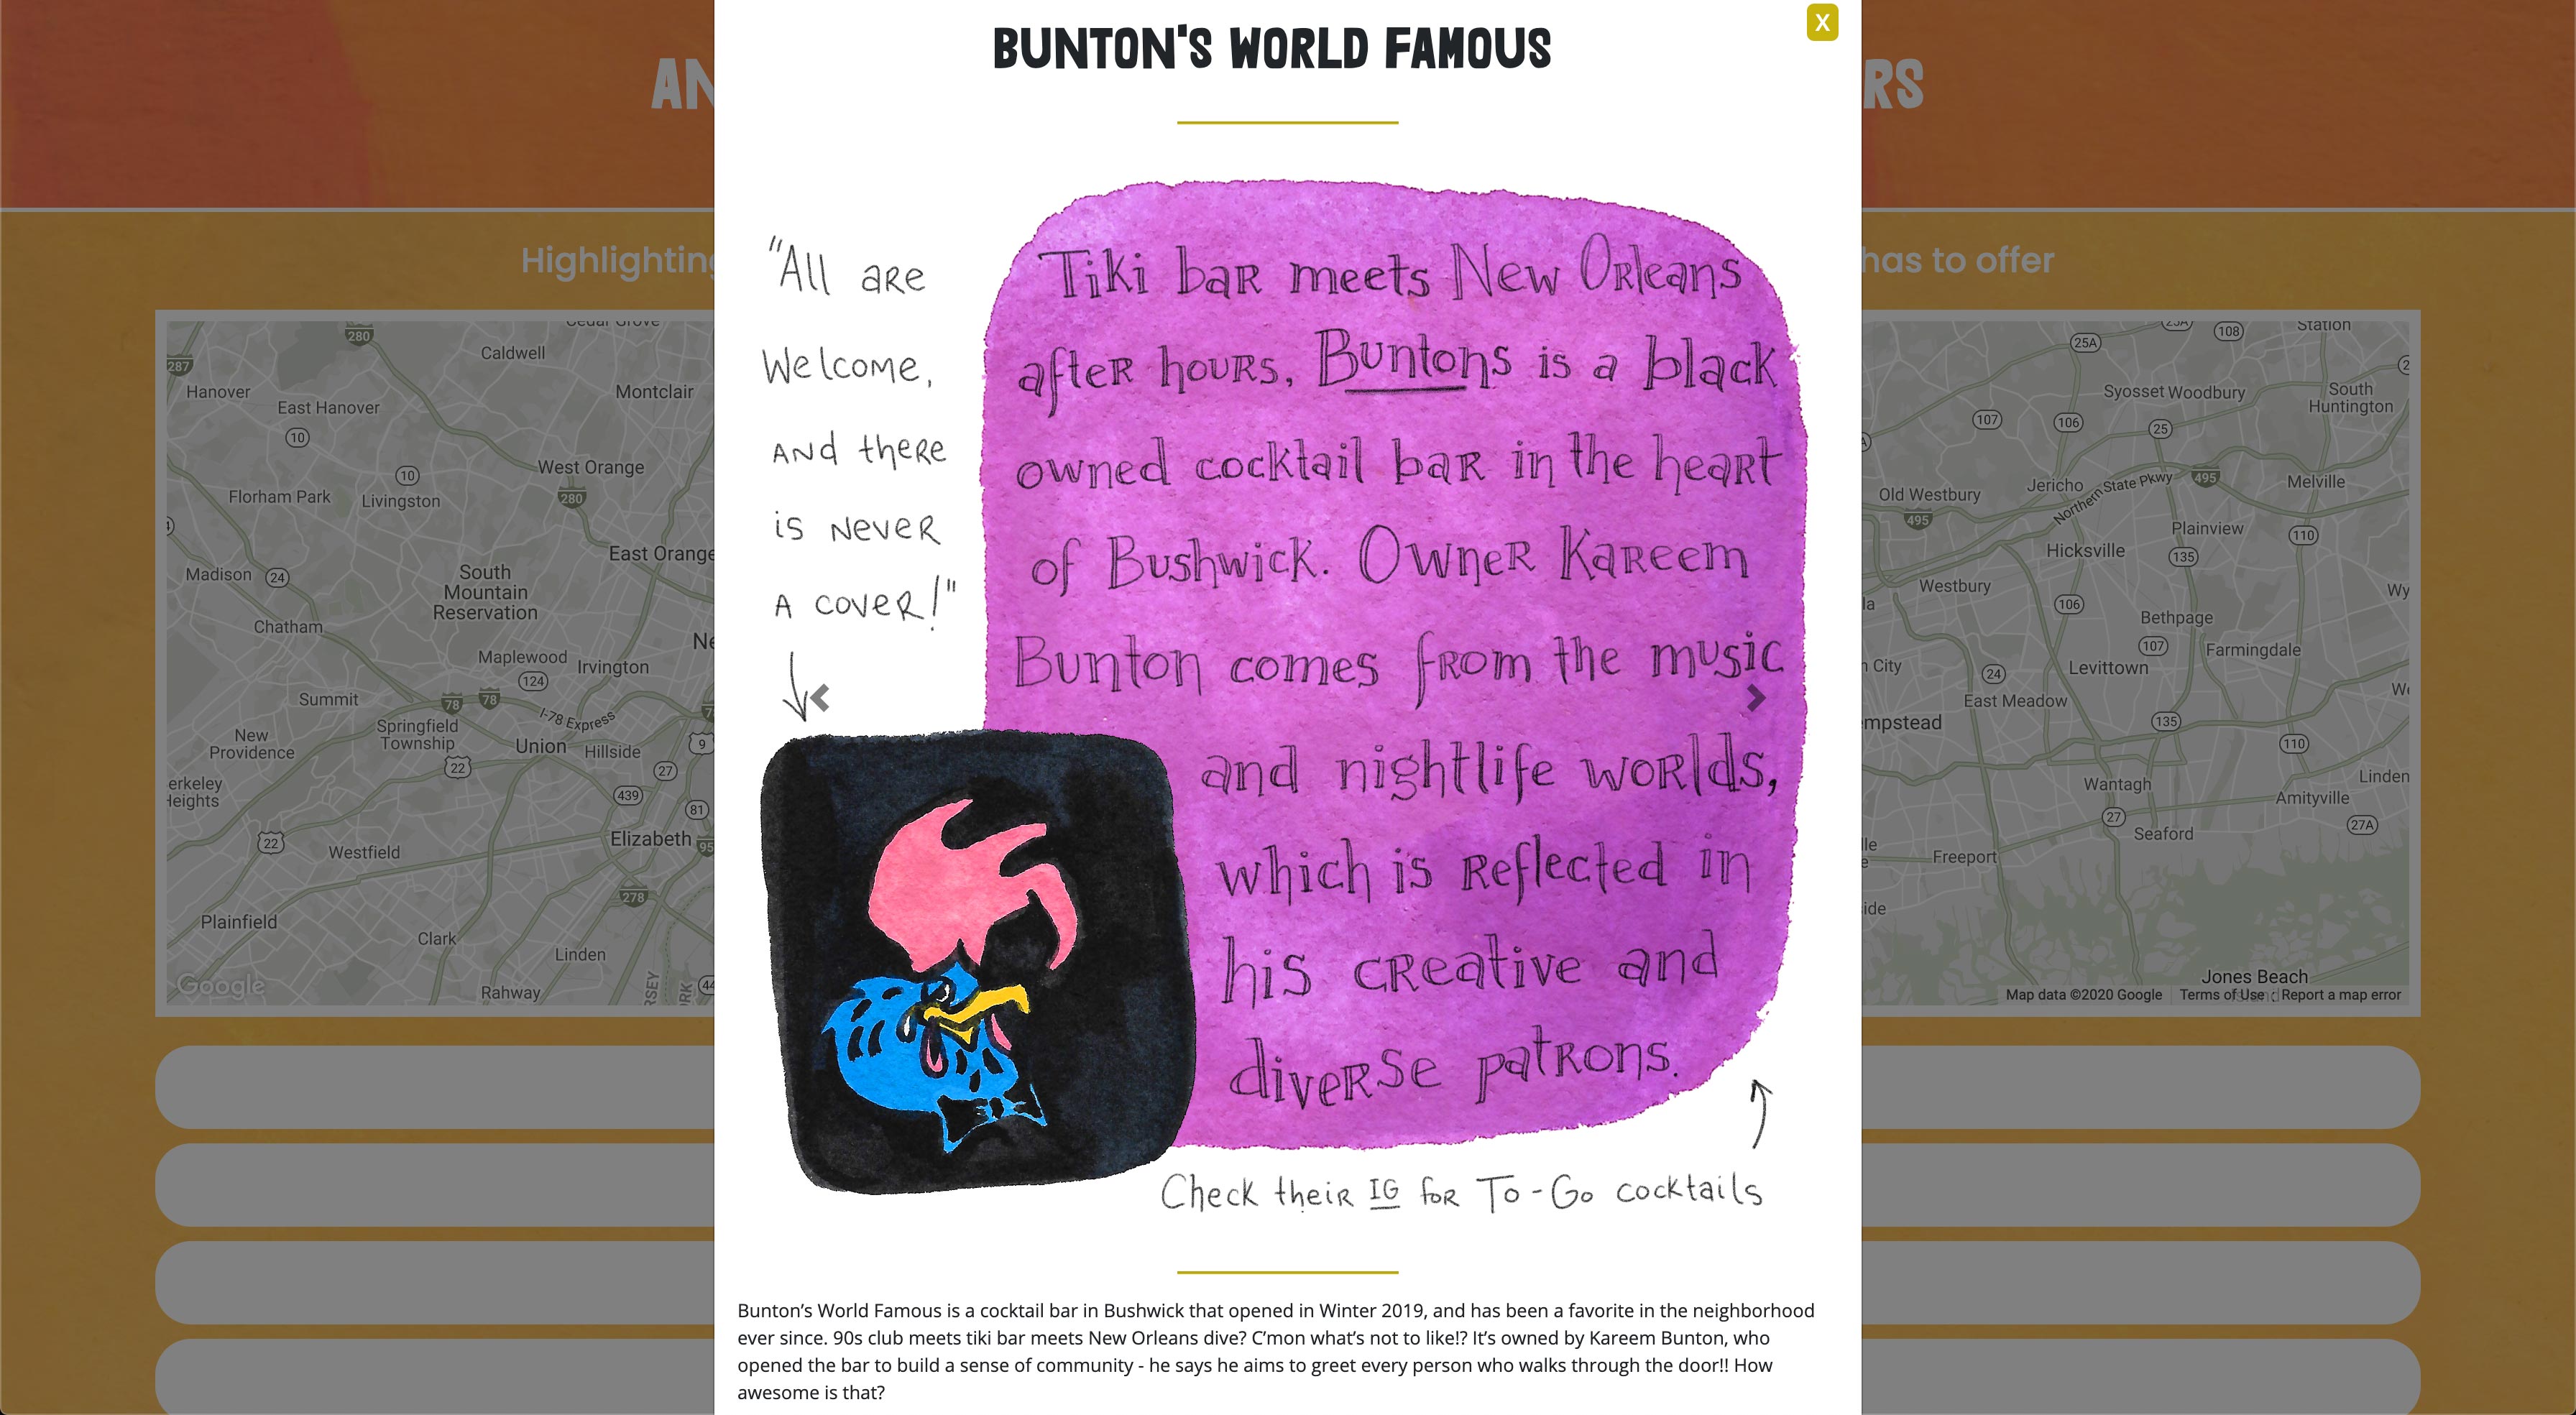 BUNTON'S WORLD FAMOUS
X
AN
RS
Highlighting
has to offer
"All are
Welcome,
and there
is never
a cover!"
Tiki bar meets New Orleans
after hours, Buntons is a black
owned cocktail bar in the heart
of Bushwick. Owner Kareem
Bunton comes from the music
and nightlife worlds,
which is reflected in
his creative and
diverse patrons.
Check their IG for To-Go cocktails
Bunton's World Famous is a cocktail bar in Bushwick that opened in Winter 2019, and has been a favorite in the neighborhood
ever since. 90s club meets tiki bar meets New Orleans dive? C'mon what's not to like!? It's owned by Kareem Bunton, who
opened the bar to build a sense of community - he says he aims to greet every person who walks through the door!! How
awesome is that?
280
Caldwell
287
Hanover
Montclair
East Hanover
10
West Orange
10
280
Florham Park
Livingston
East Orange
Madison
24
South
Mountain
Reservation
Chatham
Maplewood
Irvington
124
Summit
78
78
I-78 Express
Springfield
Township
New
Providence
Union
Hillside
9
22
27
erkeley
Heights
439
81
22
Elizabeth
95
Westfield
278
Plainfield
Clark
Linden
Google
Rahway
108
Station
25A
Syosset
Woodbury
South
Huntington
107
106
25
Jericho
Northern State Pkwy
495
Melville
Old Westbury
495
Plainview
110
Hicksville
135
Westbury
106
Bethpage
107
Farmingdale
n City
24
Levittown
East Meadow
mpstead
135
110
Wantagh
Linden
Amityville
27
Seaford
27A
Freeport
Jones Beach
Map data ©2020 Google
Terms of Use
Report a map error